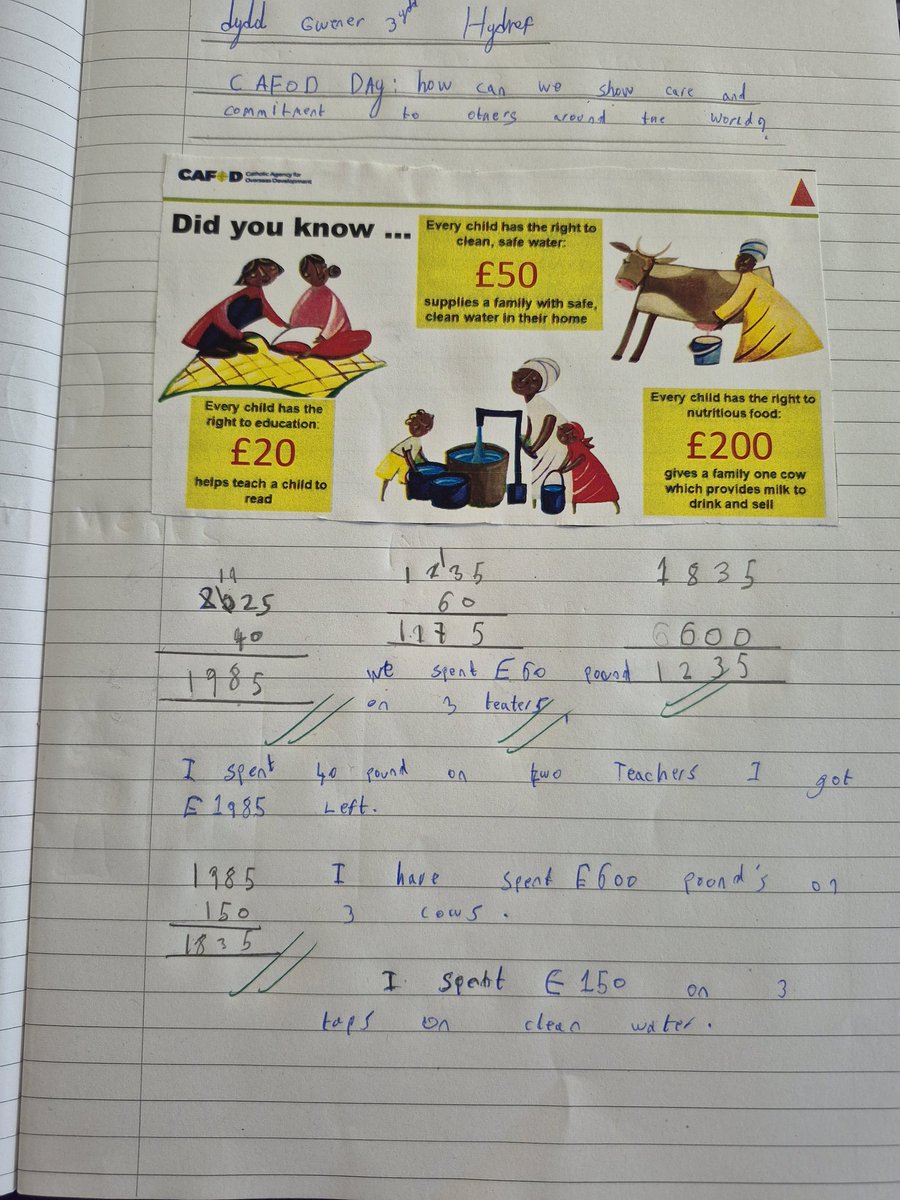 dydd Gwener 3ydd Hydref
CAFOD DAY: how can we show care and
commitment to others around the world?
CAFOD Catholic Agency for
Overseas Development
Did you know ...
Every child has the right to
clean, safe water:
£50
supplies a family with safe,
clean water in their home
Every child has the
right to education:
£20
helps teach a child to
read
Every child has the right to
nutritious food:
£200
gives a family one cow
which provides milk to
drink and sell
2025
40
1985
1235
60
1175
1835
600
1235
we spent £60 pound
on 3 teaters
I spent 40 pound on two Teachers I got
£1985 Left.
1985
150
1835
I have spent £600 poond's on
3 cows.
I spent £150 on 3
taps on clean water.